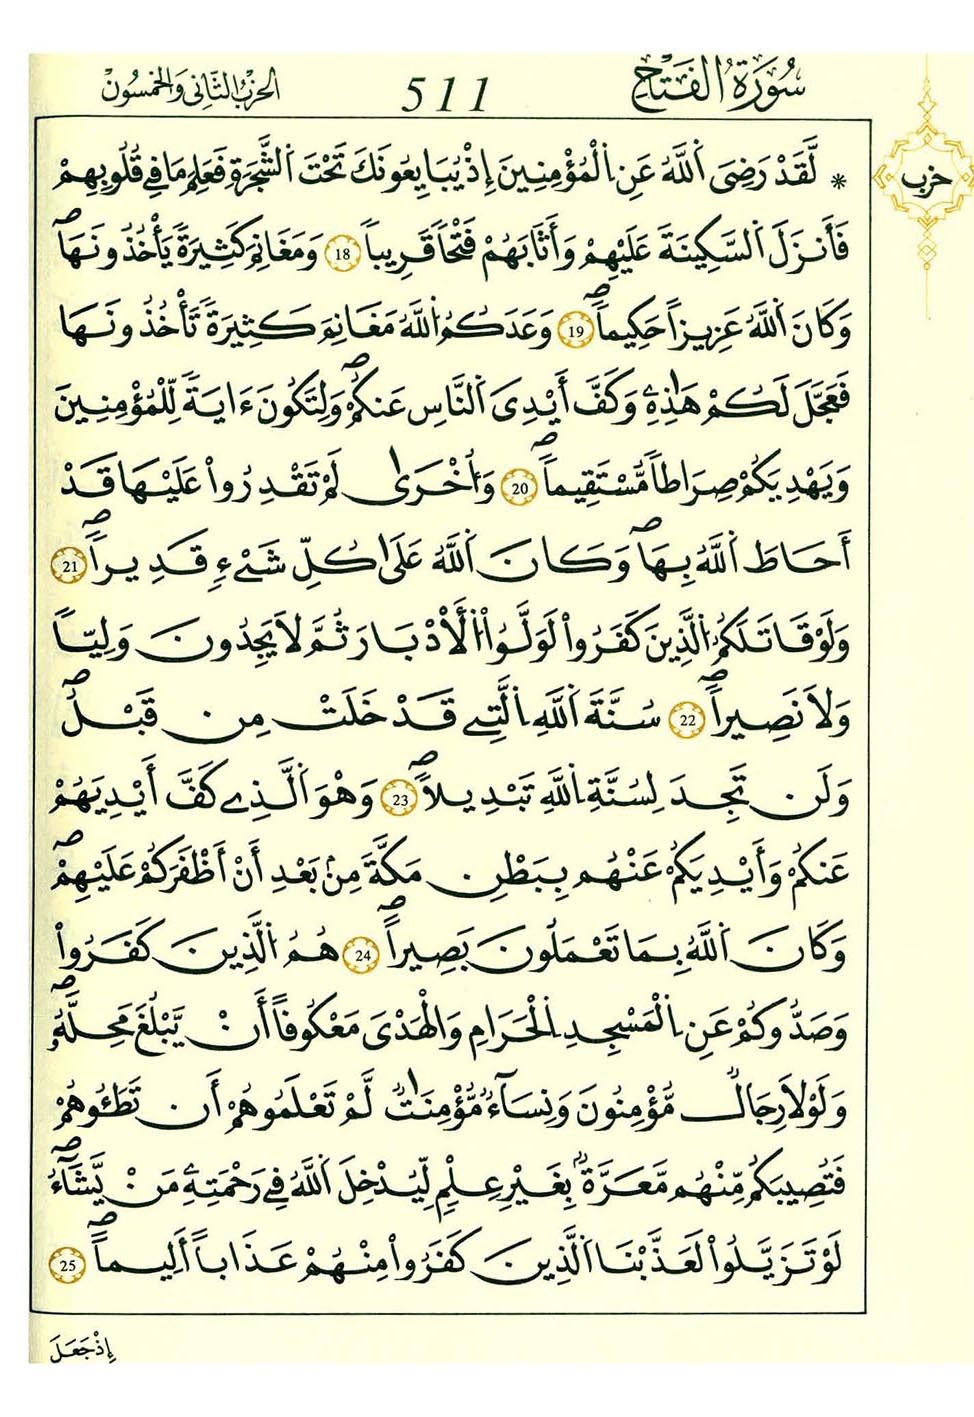 سُورَةُ الْفَتْحِ 511 الحزب الثاني والخمسون
حزب
* لَّقَدْ رَضِيَ اَللَّهُ عَنِ اِلْمُؤْمِنِينَ إِذْ يُبَايِعُونَكَ تَحْتَ اَلشَّجَرَةِ فَعَلِمَ مَا فِے قُلُوبِهِمْ
فَأَنزَلَ اَلسَّكِينَةَ عَلَيْهِمْ وَأَثَابَهُمْ فَتْحاً قَرِيباً 18 وَمَغَانِمَ كَثِيرَةً يَأْخُذُونَهَاۖ
وَكَانَ اَللَّهُ عَزِيزاً حَكِيماًۖ 19 وَعَدَكُمُ اُللَّهُ مَغَانِمَ كَثِيرَةً تَأْخُذُونَهَا
فَعَجَّلَ لَكُمْ هَٰذِهِۦ وَكَفَّ أَيْدِيَ اَلنَّاسِ عَنكُمْۖ وَلِتَكُونَ ءَايَةً لِّلْمُؤْمِنِينَ
وَيَهْدِيَكُمْ صِرَاطاً مُّسْتَقِيماًۖ 20 وَأُخْرَىٰ لَمْ تَقْدِرُواْ عَلَيْهَا قَدْ
أَحَاطَ اَللَّهُ بِهَاۖ وَكَانَ اَللَّهُ عَلَىٰ كُلِّ شَيْءٖ قَدِيراًۖ 21
وَلَوْ قَاتَلَكُمُ اُلذِينَ كَفَرُواْ لَوَلَّوُاْ اُلْأَدْبَارَ ثُمَّ لَا يَجِدُونَ وَلِيّاً
وَلَا نَصِيراًۖ 22 سُنَّةَ اَللَّهِ اِلَّتِے قَدْ خَلَتْ مِن قَبْلُۖ
وَلَن تَجِدَ لِسُنَّةِ اِللَّهِ تَبْدِيلاًۖ 23 وَهْوَ اَلَّذِے كَفَّ أَيْدِيَهُمْ
عَنكُمْ وَأَيْدِيَكُمْ عَنْهُم بِبَطْنِ مَكَّةَ مِنۢ بَعْدِ أَنْ أَظْفَرَكُمْ عَلَيْهِمْۖ
وَكَانَ اَللَّهُ بِمَا تَعْمَلُونَ بَصِيراًۖ 24 هُمُ اُلذِينَ كَفَرُواْ
وَصَدُّوكُمْ عَنِ اِلْمَسْجِدِ اِلْحَرَامِ وَالْهَدْيَ مَعْكُوفاً أَنْ يَّبْلُغَ مَحِلَّهُۥۖ
وَلَوْلَا رِجَالٌ مُّؤْمِنُونَ وَنِسَآءٌ مُّؤْمِنَٰتٌ لَّمْ تَعْلَمُوهُمْ أَن تَطَـُٔوهُمْ
فَتُصِيبَكُم مِّنْهُم مَّعَرَّةُۢ بِغَيْرِ عِلْمٖ لِّيُدْخِلَ اَللَّهُ فِے رَحْمَتِهِۦ مَنْ يَّشَآءُۖ
لَوْ تَزَيَّلُواْ لَعَذَّبْنَا اَلَّذِينَ كَفَرُواْ مِنْهُمْ عَذَاباً أَلِيماًۖ 25
إِذْ جَعَلَ